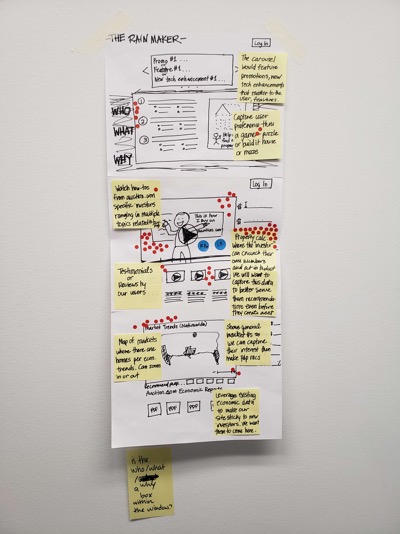 -THE RAIN MAKER-
Log In
Promo #1 ...
Feature #1 ...
New tech enhancement #1 ...
The carousel
would feature
promotions, new
tech enhancements
that matter to the
user,
WHO
WHAT
WHY
1
2
3
Capture user
preferences thru
a game, puzzle
or build it house
or maze
Log In
Watch how-tos
from auction.com
specific investors
ranging in multiple
topics
This is how
I buy on
$
$
Property calc is
where the investor
can
own numbers
We will want to
capture this data
to better serve
them
tions even before
they create acct
Testimonials
or
Reviews by
our users
Market Trends (Nationwide)
Map of markets
where there are
homes per econ.
trends. Can zoom
in or out
Shows general
market
we can capture
their interest then
make
Recommend
Auction.com Economic Reports
PDF
PDF
PDF
Leverages existing
economic data
to make our
site sticky to
investors. We want
them to come here.
is the
who/what
/
a why
box
within
the window?